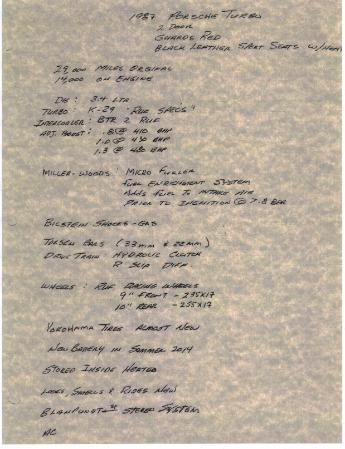 1987 PORSCHE TURBO
2 DOOR
GUARDS RED
BLACK LEATHER SPORT SEATS W/HEAT
29,000 MILES ORGINAL
14,000 ON ENGINE
3.4 LTR
TURBO: K-29 "RUF SPECS"
INTERCOOLER: BTR 2 RUF
ADJ. BOOST: .8 @ 410 BHP
1.0 @ 430 BHP
1.3 @ 480 BHP
MILLER-WOODS: MICRO FUELER
FUEL ENRICHMENT SYSTEM
ADDS FUEL TO INTAKE AIR
PRIOR TO INGNITION @ 7.8 BAR
BILSTEIN SHOCKS-GAS
TORSEN BARS (33mm & 22mm)
DRIVE TRAIN HYDROLIC CLUTCH
R SLIP DIFF.
WHEELS: RUF RACING WHEELS
9" FRONT - 235X17
10" REAR - 255X17
YOKOHAMA TIRES ALMOST NEW
NEW BATERY IN SOMMER 2014
STORED INSIDE HEATED
LOOKS, SMELLS & RIDES NEW
BLAUPUNKT STEREO SYSTEM
AC